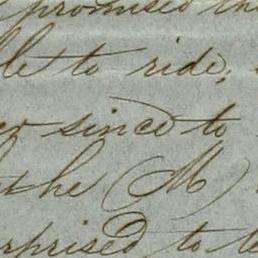 promised th
le to ride;
er since to
the (M)
rprised to le